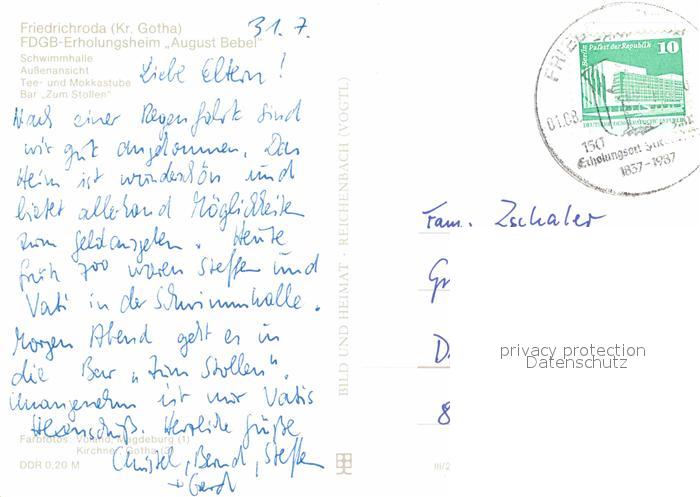 Friedrichroda (Kr. Gotha)
FDGB-Erholungsheim „August Bebel"
Schwimmhalle
Außenansicht
Tee- und Mokkastube
Bar „Zum Stollen"
31. 7.
Liebe Eltern!
Nach einer Regenfahrt sind
wir gut angekommen. Das
Heim ist wunderschön und
bietet allerhand Möglichkeiten
zum Geldausgeben. Heute
früh 7.00 waren Steffen und
Vati in der Schwimmhalle.
Morgen Abend geht es in
die Bar „Zum Stollen".
Unangenehm ist nur Vatis
Hexenschuß. Herzliche Grüße
Christel, Bernd, Steffen
+ Gerd
Farbfotos: Voland, Magdeburg (1)
Kirchner, Gotha (3)
DDR 0,20 M
BILD UND HEIMAT · REICHENBACH (VOGTL)
III/2
Berlin Palast der Republik
10
DEUTSCHE DEMOKRATISCHE REPUBLIK
FRIED
01.08.
150
Erholungsort
1837-1987
Fam. Zschaler
Gr
D
8
privacy protection
Datenschutz